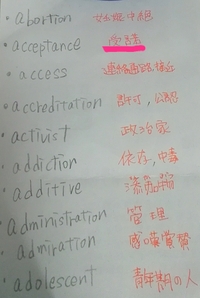 • abortion 妊娠中絶
• acceptance 受諾
• access 連絡通路,接近
• accreditation 許可,公認
• activist 政治家
• addiction 依存,中毒
• additive 添加
• administration 管理
• admiration 感嘆賞賛
• adolescent 青年期の人